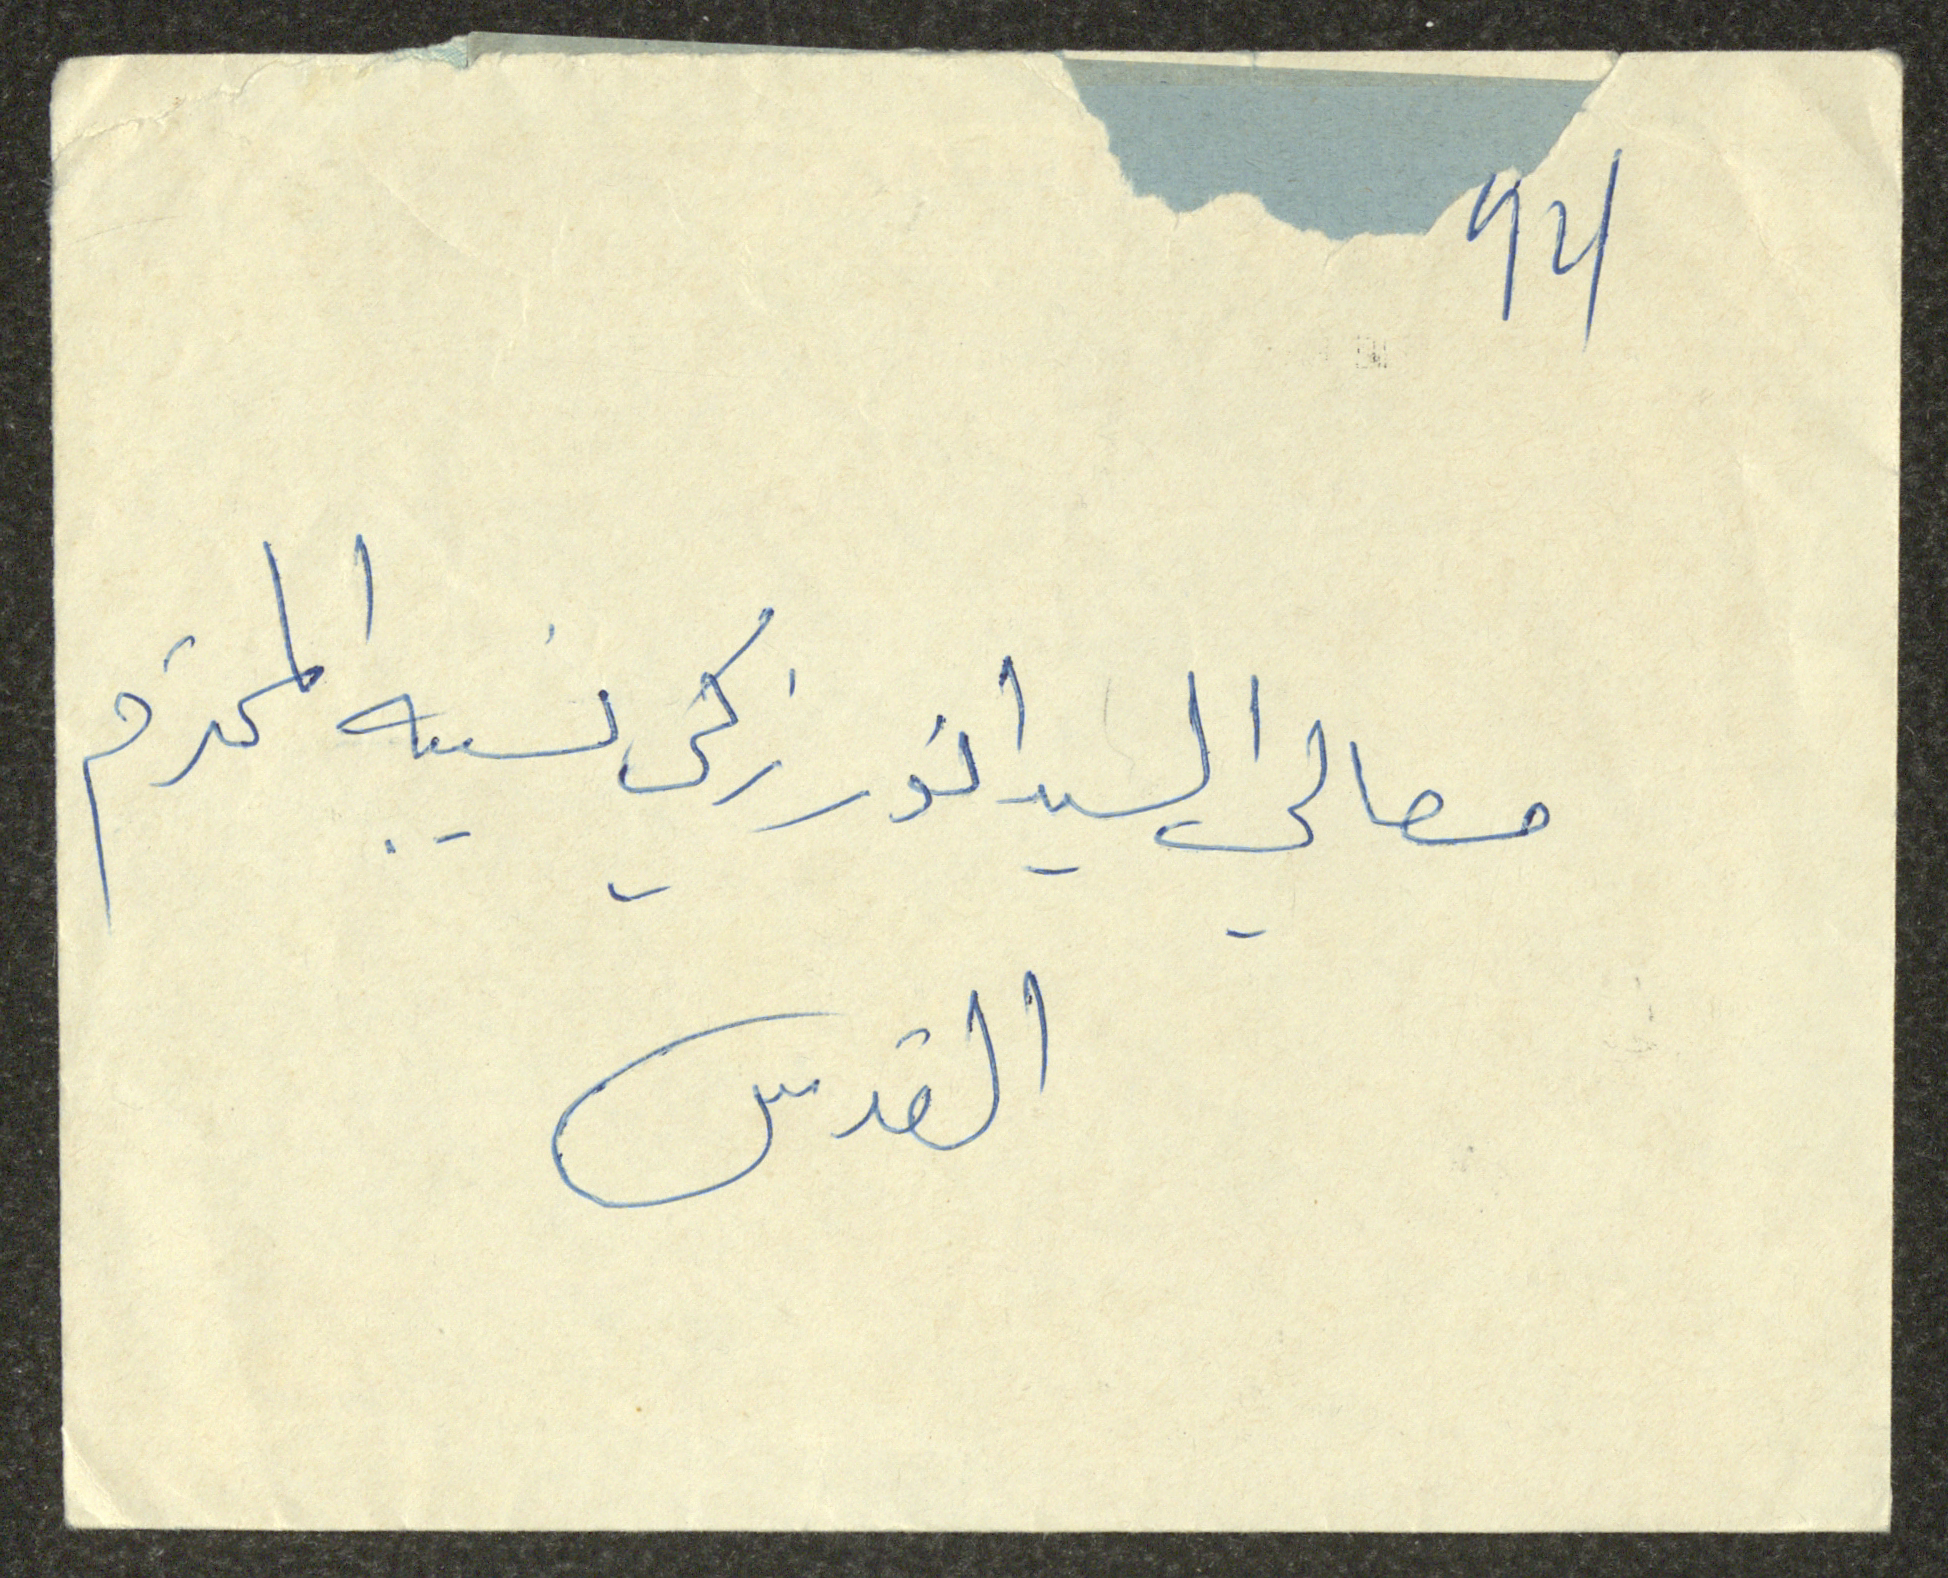 معالي السيد انور زكي نسيبه المحترم
القدس